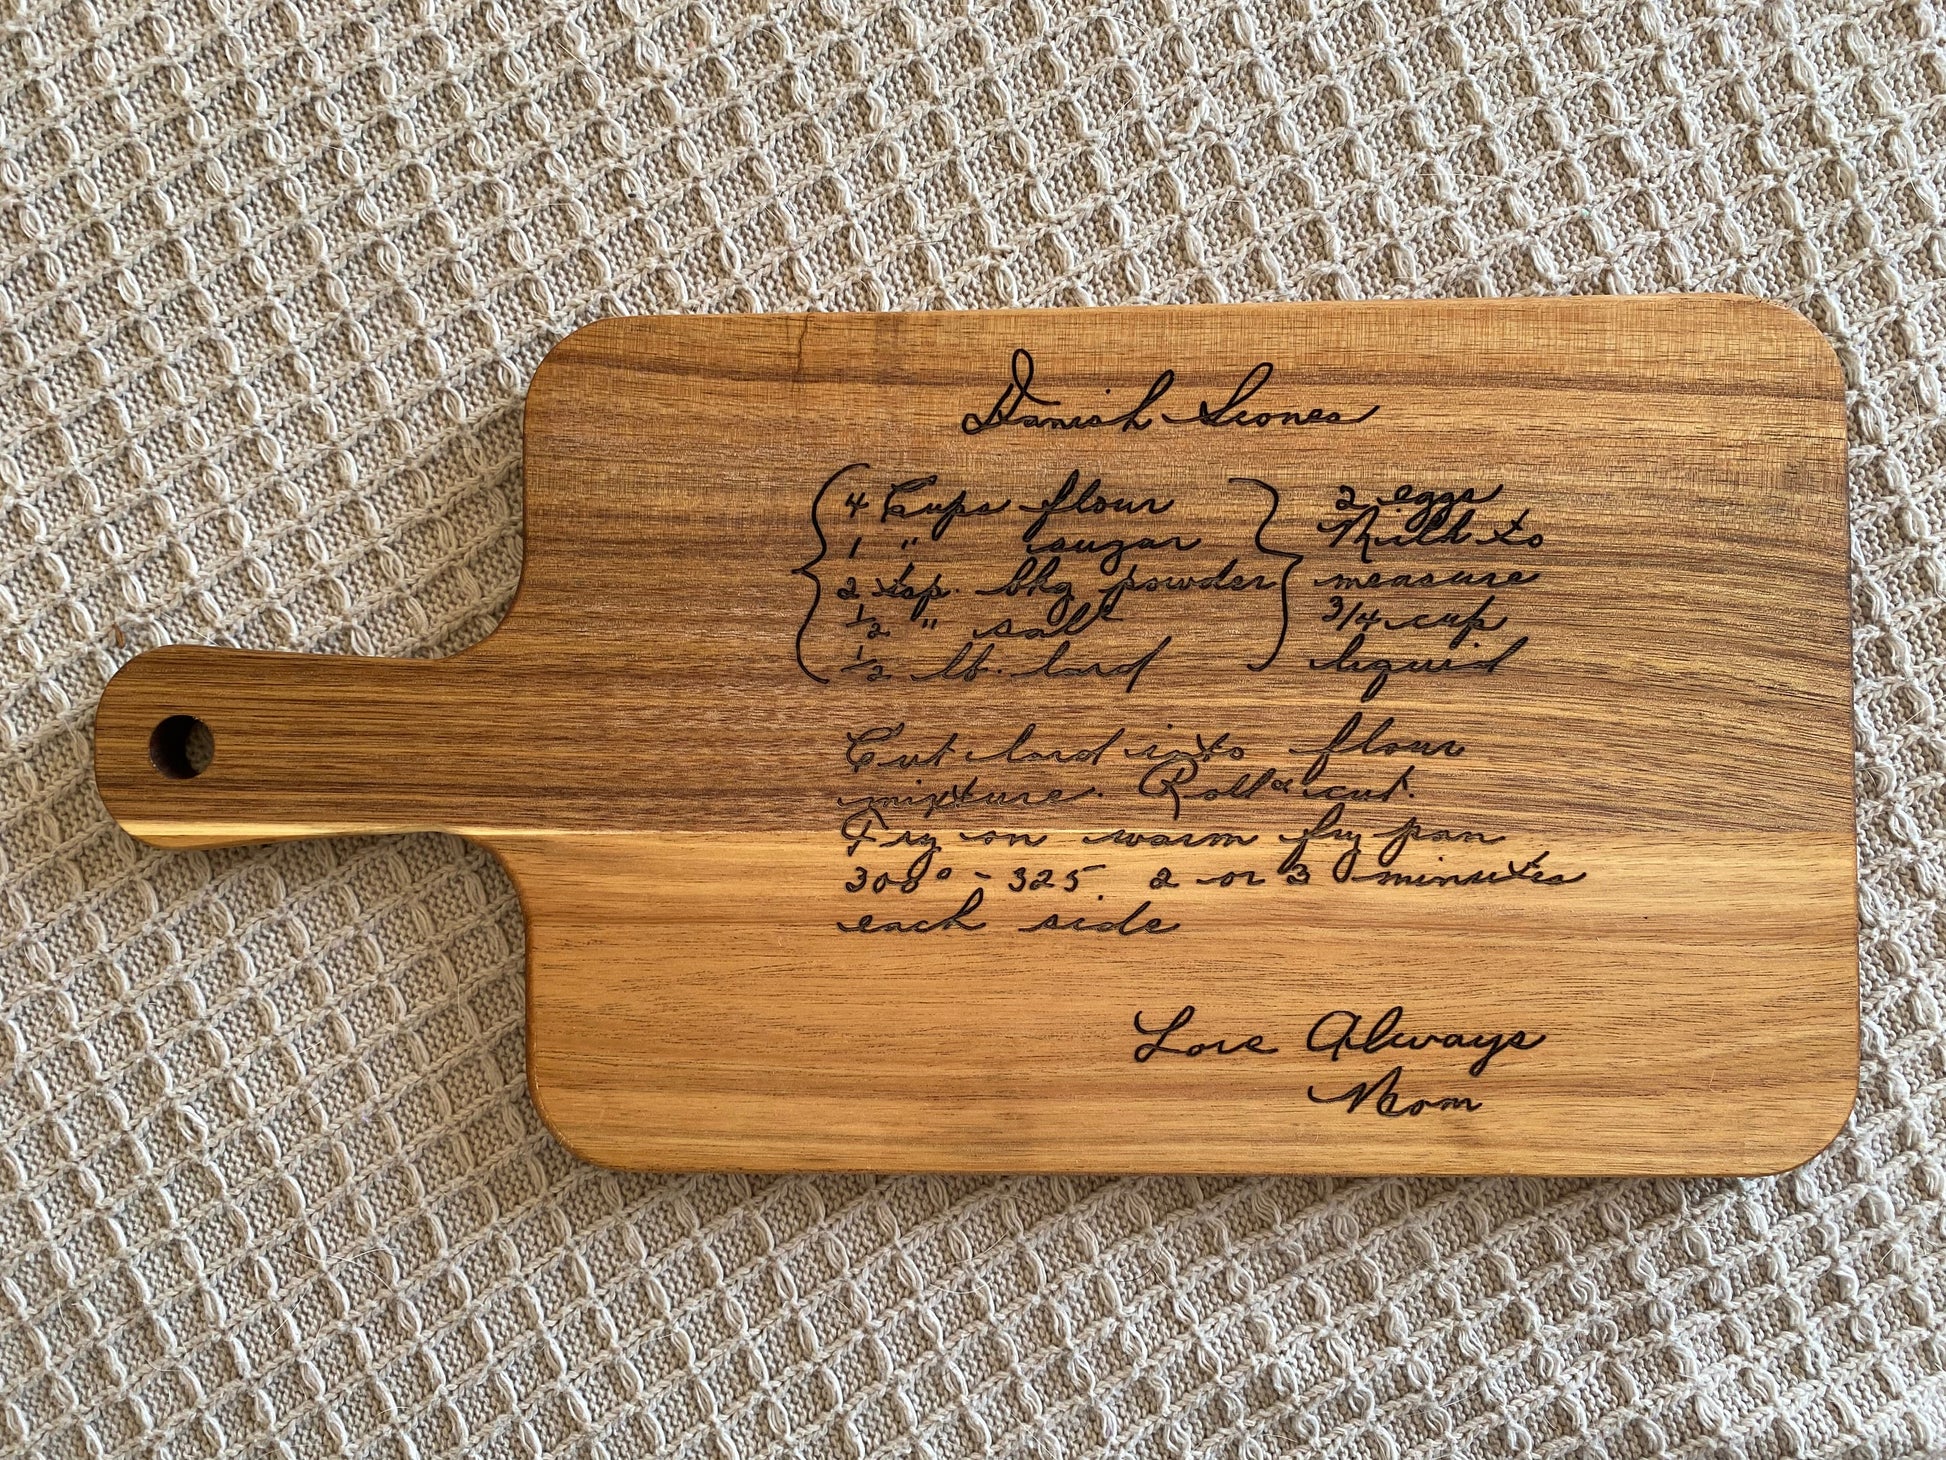 Danish Scones
4 Cups flour
1 " sugar
2 tsp. bkg powder
1/2 " salt
1/2 lb. lard
2 eggs
Milk to
measure
3/4 cup
liquid
Cut lard into flour
mixture. Roll & cut.
Fry on warm fry pan
300° - 325. 2 or 3 minutes
each side
Love Always
Mom